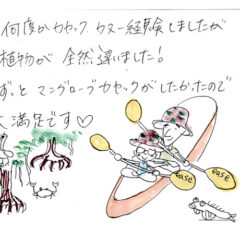 何度かカヤック カヌー経験しましたが
植物が 全然違いました!
ずっと マングローブカヤックがしたかったので
大満足です♡
ease
ease